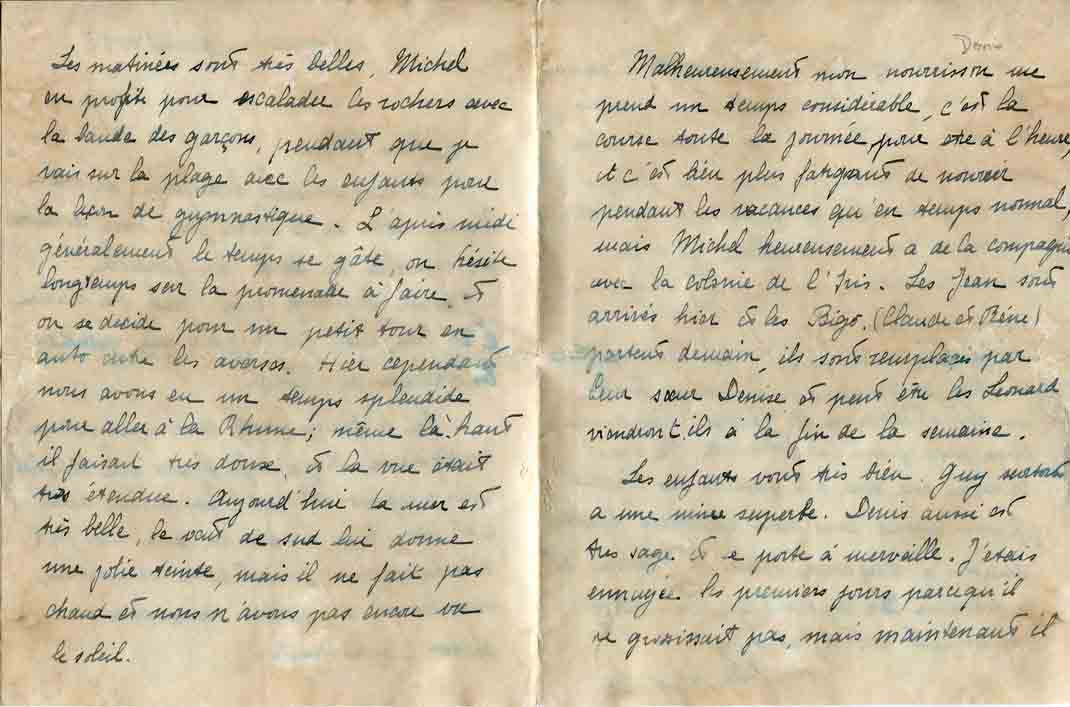 Les matinées sont très belles, Michel
en profite pour escalader les rochers avec
la bande des garçons, pendant que je
vais sur la plage avec les enfants pour
la leçon de gymnastique. L'après midi
généralement le temps se gâte, on hésite
longtemps sur la promenade à faire, et
on se décide pour un petit tour en
auto entre les averses. Hier cependant
nous avons eu un temps splendide
pour aller à la Rhune; même là-haut
il faisait très doux, et la vue était
très étendue. Aujourd'hui la mer est
très belle, le vent de sud lui donne
une jolie teinte, mais il ne fait pas
chaud et nous n'avons pas encore vu
le soleil.
Denis
Malheureusement mon nourrisson me
prend un temps considérable, c'est la
course toute la journée, pour être à l'heure,
et c'est bien plus fatigant de nourrir
pendant les vacances qu'en temps normal,
mais Michel heureusement a de la compagnie
avec la colonie de l'Iris. Les Jean sont
arrivés hier et les Bigo, (Claude et Réné)
partent demain, ils sont remplacés par
leur sœur Denise, et peut être les Léonard
viendront-ils à la fin de la semaine.
Les enfants vont très bien. Guy surtout
a une mine superbe. Denis aussi est
très sage et se porte à merveille. J'étais
ennuyée les premiers jours parcequ'il
ne grossissait pas, mais maintenant il